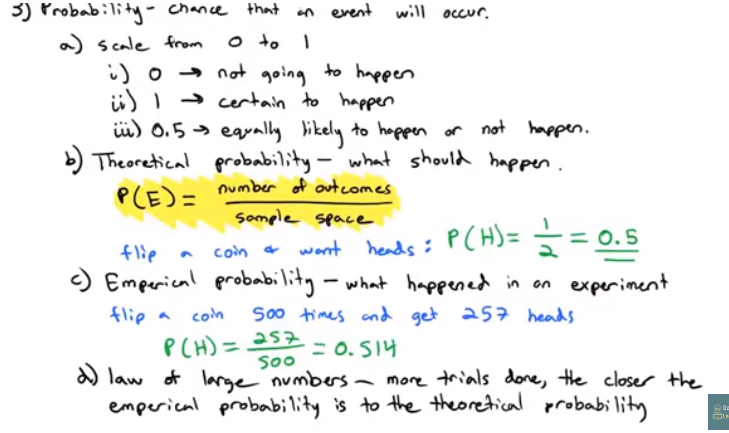 3) Probability - chance that an event will occur.
a) scale from 0 to 1
i) 0 → not going to happen
ii) 1 → certain to happen
iii) 0.5 → equally likely to happen or not happen.
b) Theoretical probability - what should happen.
P(E) = number of outcomes / sample space
flip a coin & want heads: P(H) = 1/2 = 0.5
c) Emperical probability - what happened in an experiment
flip a coin 500 times and get 257 heads
P(H) = 257/500 = 0.514
d) law of large numbers - more trials done, the closer the
emperical probability is to the theoretical probability